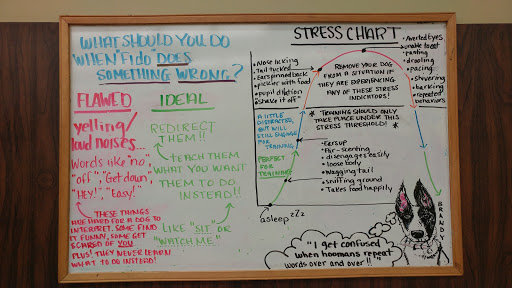 WHAT SHOULD YOU DO
WHEN Fido DOES
SOMETHING WRONG?
FLAWED
yelling/
loud noises...
Words like "no",
"off", "Get down",
"HEY!", "Easy!"
THESE THINGS
ARE HARD FOR A DOG TO
INTERPRET. SOME FIND
IT FUNNY, SOME GET
SCARED OF YOU
PLUS! THEY NEVER LEARN
WHAT TO DO INSTEAD!
IDEAL
REDIRECT
THEM!!
TEACH THEM
WHAT YOU WANT
THEM TO DO
INSTEAD!!
LIKE "SIT" OR
"WATCH ME"
STRESS CHART
• Nose licking
• Tail tucked
• Ears pinned back
• pickier with food
• pupil dilation
• "shake it off"
REMOVE YOUR DOG
FROM A SITUATION IF
THEY ARE EXPERIENCING
ANY OF THESE STRESS
INDICATORS!
• Averted Eyes
• unable to eat
• panting
• drooling
• pacing
• shivering
• barking
• repeated
behaviors
A LITTLE
DISTRACTED,
BUT WILL
STILL ENGAGE
FOR
TRAINING
* TRAINING SHOULD ONLY *
TAKE PLACE UNDER THIS
STRESS THRESHOLD!
PERFECT
FOR
TRAINING
• Ears up
• Air-scenting
• disengages easily
• loose body
• Wagging tail
• sniffing ground
• Takes food happily
asleep zzz
"I get confused
when hoomans repeat
words over and over!!"
BRANDY